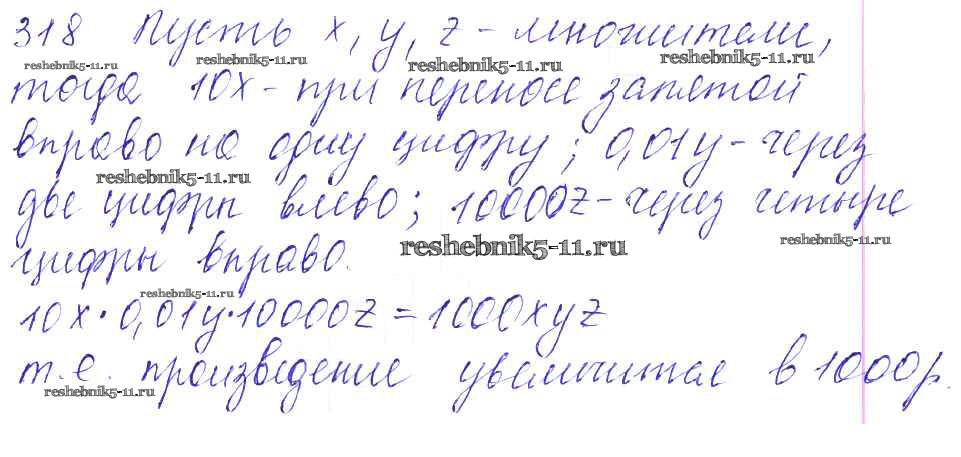 318 Пусть x, y, z - множители,
reshebnik5-11.ru reshebnik5-11.ru reshebnik5-11.ru reshebnik5-11.ru
тогда 10x - при переносе запятой
вправо на одну цифру; 0,01y - через
reshebnik5-11.ru
две цифры влево; 10000z - через четыре
reshebnik5-11.ru reshebnik5-11.ru
цифры вправо.
reshebnik5-11.ru
10x · 0,01y · 10000z = 1000xyz
т.е. произведение увеличится в 1000 р.
reshebnik5-11.ru